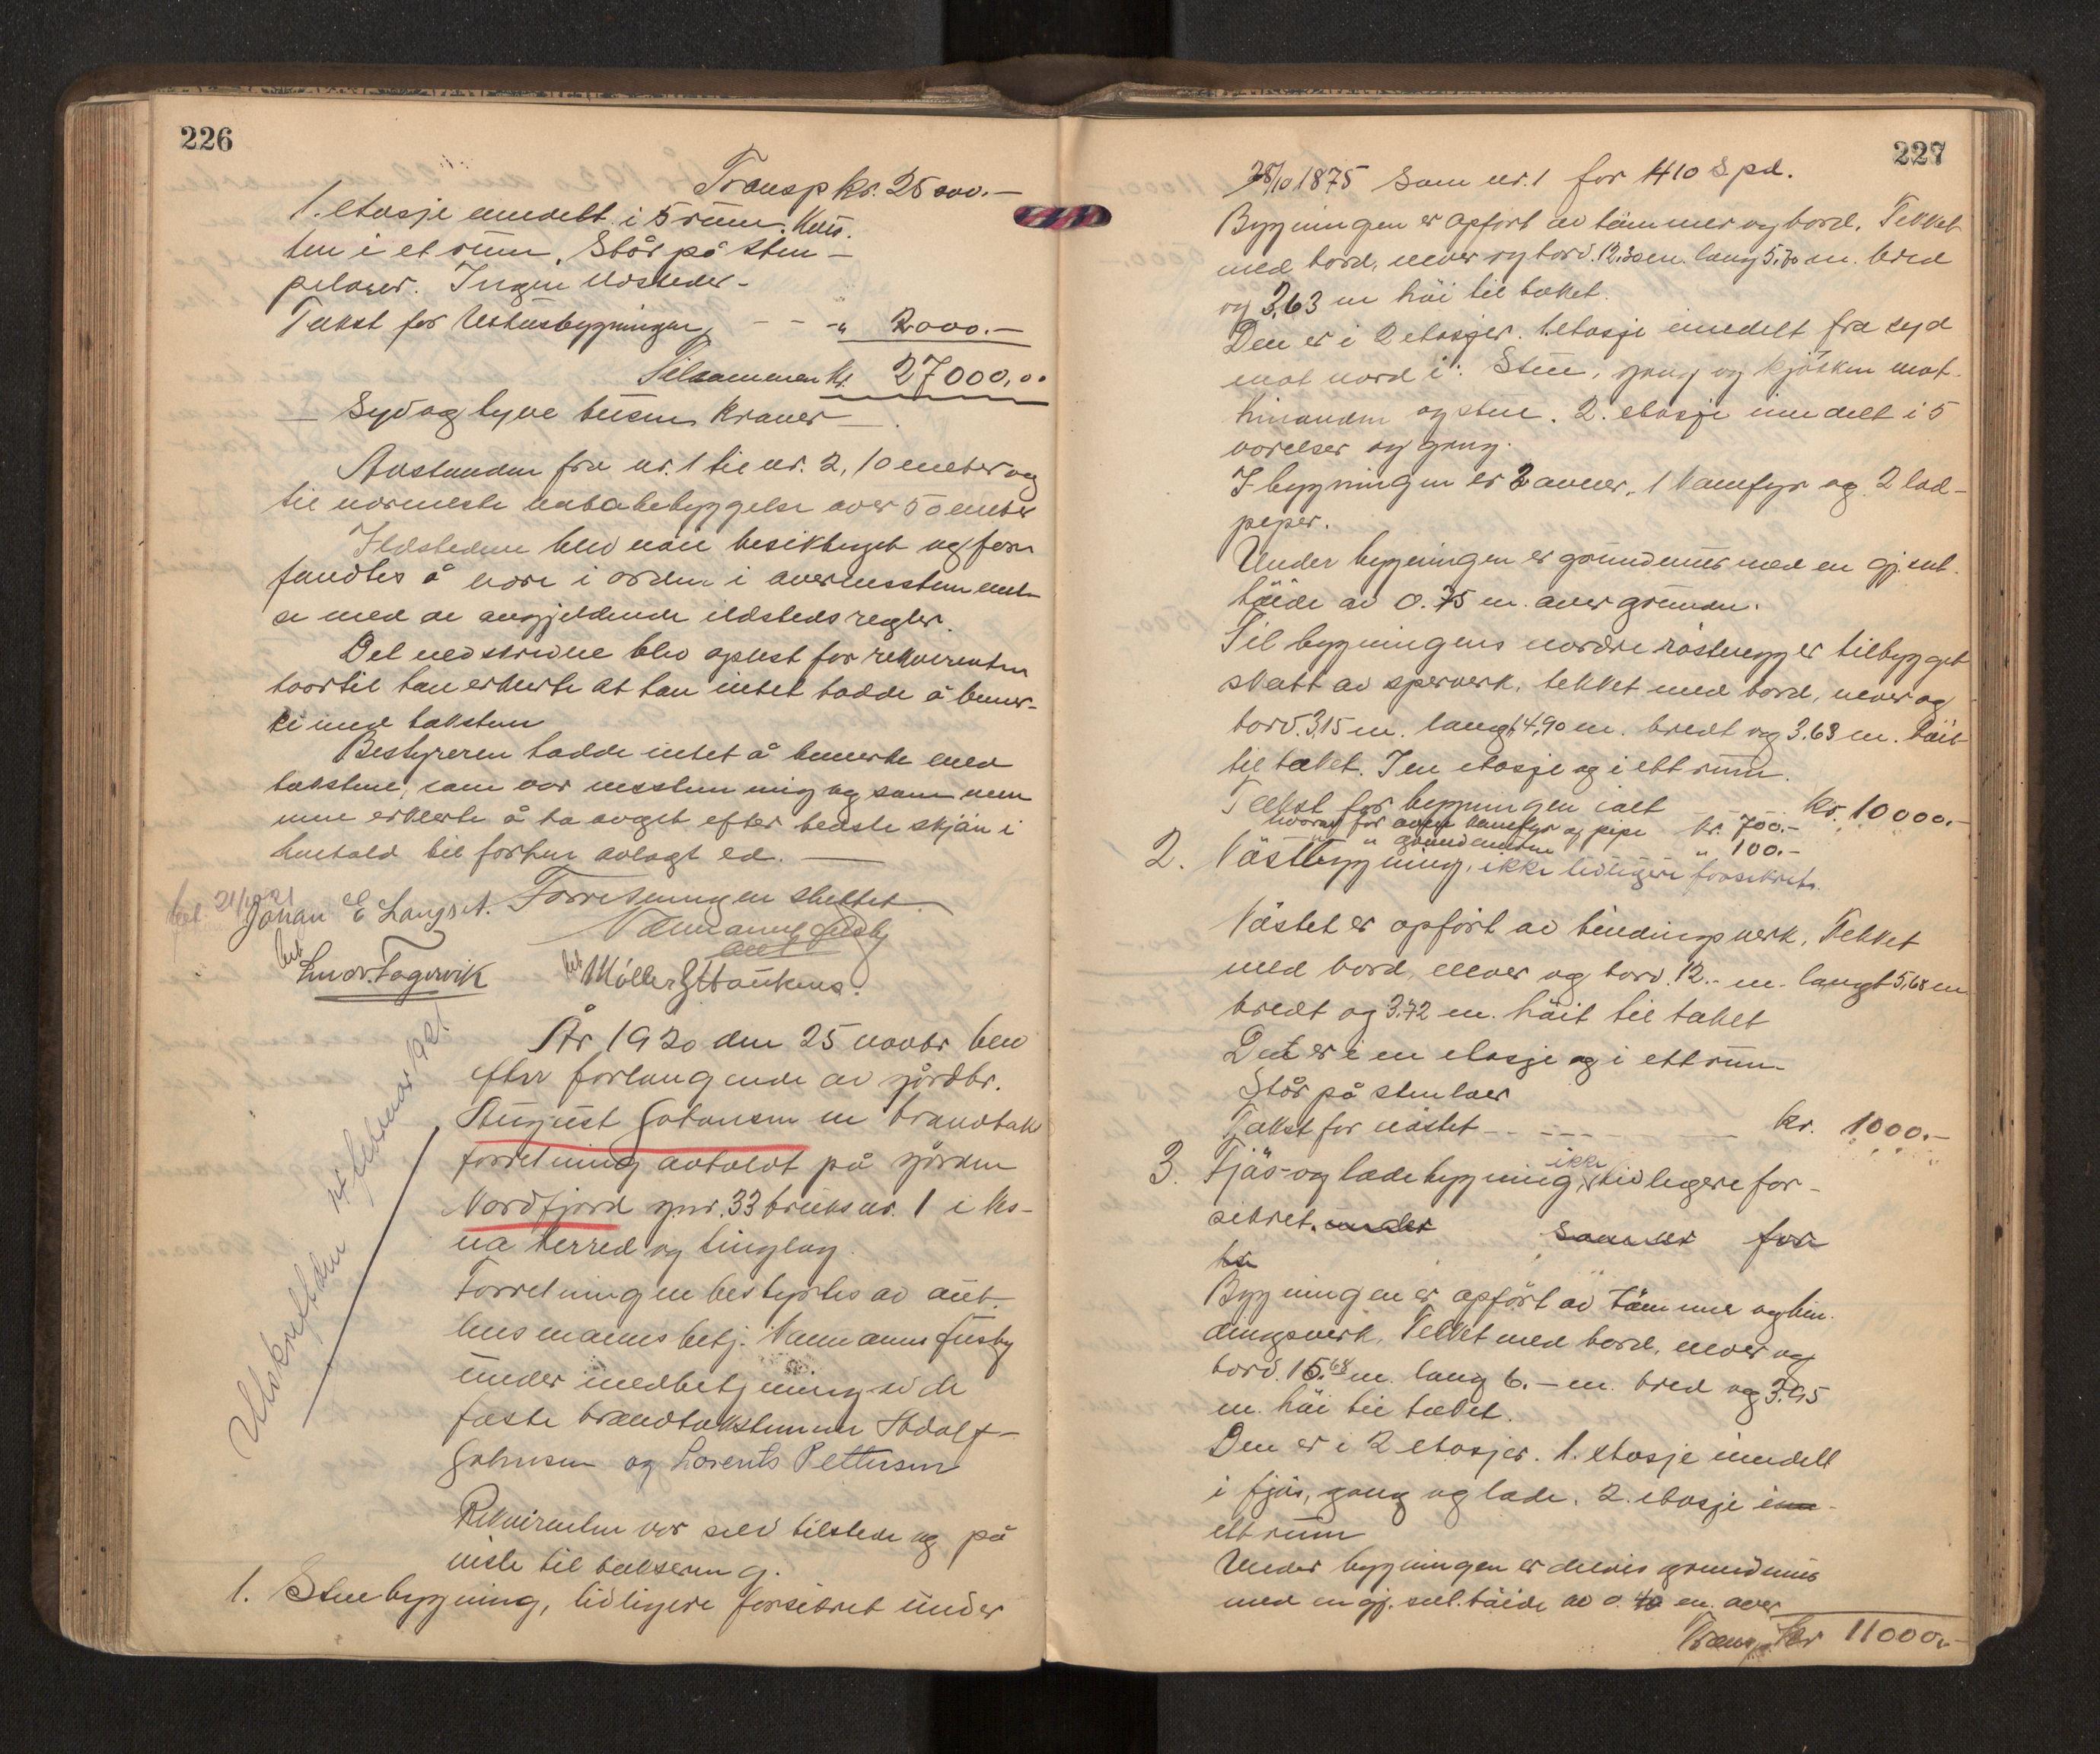 226
Transp kr. 25000.-
1. etasje inndelt i 5 rum. Kvis-
ten i et rum. Står på sten-
pelarer. Ingen ildsteder.
Takst for Uthusbygningen, - - -" 2000.-
Tilsammen kr. 27000,00
- Syv og tyve tusen kroner -
Avstanden fra nr. 1 til nr. 2, 10 meter og
til nærmeste nabobebyggelse over 50 meter
Ildstedene blev nøie besiktiget og for-
fandtes å være i orden i overensstemmel-
se med de angjeldende ildstedsregler.
Det nedskrevne blev oplest for rekvirenten
hvortil han erklerte at han intet hadde å bemer-
ke imod taksten
Bestyreren hadde intet å bemerke med
takstene, som var enstemmig og som men-
nene erklerte å ha avgit efter bedste skjøn i
henhold til forhen avlagt ed. -
bet. 21/1 1921
Johan E Langset. Forretningen sluttet
Normanns Husby
bet Einar Fagervik bet Møller G Haukenes.
År 1920 den 25 novbr blev
efter forlangende av gårdbr.
August Johansen en brandtakst
forretning avholdt på gården
Nordfjord gnr. 33 bruksnr. 1 i Ks-
na herred og tinglag.
Forretningen bestyrtes av
lensmannsbetj. Normanns Husby
under medbetjening av de
faste brandtakstmenn Adolf
Johnsen og Lorents Pettersen
Utskrift den 14 februar 1921
Rekvirenten var selv tilstede og på
viste til taksering.
1. Stuebygning, tidligere forsikret under
227
28/10 1875 som nr. 1 for 410 Spd.
Bygningen er opført av tømmer og bord. Tekket
med bord, never og torv. 12,30 m. lang 5,70 m. bred
og 3,63 m høi til taket.
Den er i 2 etasjer. 1. etasje inndelt fra syd
mot nord i: Stue, gang og kjøkken mot
hinanden og stue. 2. etasje inndelt i 5
værelser og gang.
I bygningen er 2 ovner, 1 komfyr og 2 lod-
piper.
Under bygningen er grundmur med en gj.snt.
høide av 0.75 m. over grunden.
Til bygningens nordre røstvegg er tilbygget
skott av sperverk, tekket med bord, never og
torv. 3,15 m. langt, 4,90 m. bredt og 3.63 m. høit
til taket. I en etasje og i ett rum.
Takst for bygningen ialt kr. 10000.-
hvorav for ovner komfyr og pipe kr. 700.-
" " grundmuren " 100.-
2. Nøstbygning, ikke tidligere forsikret.
Nøstet er opført av bindingsverk, Tekket
med bord, never og torv. 12.- m. langt 5,68 m
bredt og 3.72 m. høit til taket
Det er i en etasje og i ett rum.
Står på stenlaer
Takst for nøstet - - - kr. 1000.-
3. Fjøs- og ladebygning, ikke tidligere for-
sikret. under som nr for
Bygningen er opført av tømmer og bin-
dingsverk. Tekket med bord, never og
torv. 15.68 m. lang 6.- m. bred og 3.95
m. høi til taket.
Den er i 2 etasjer. 1. etasje inndelt
i fjøs, gang og lade. 2. etasje inn-
ett rum
Under bygningen er delvis grundmur
med en gj. snl. høide av 0.40 m. over
Transp. kr 11000.-